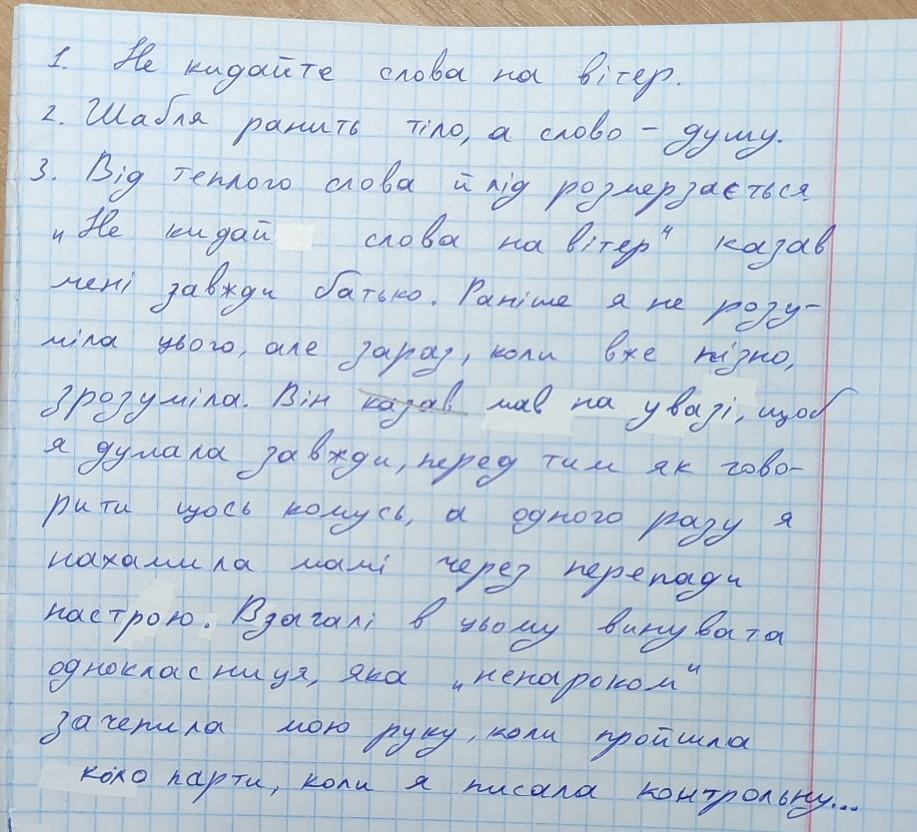 1. Не кидайте слова на вітер.
2. Шабля ранить тіло, а слово – душу.
3. Від теплого слова й лід розмерзається
„Не кидай слова на вітер" казав
мені завжди батько. Раніше я не розу-
міла цього, але зараз, коли вже пізно,
зрозуміла. Він казав мав на увазі, щоб
я думала завжди, перед тим як гово-
рити щось комусь, а одного разу я
нахамила мамі через перепади
настрою. Взагалі в цьому винувата
однокласниця, яка „ненароком"
зачепила мою руку, коли пройшла
коло парти, коли я писала контрольну...